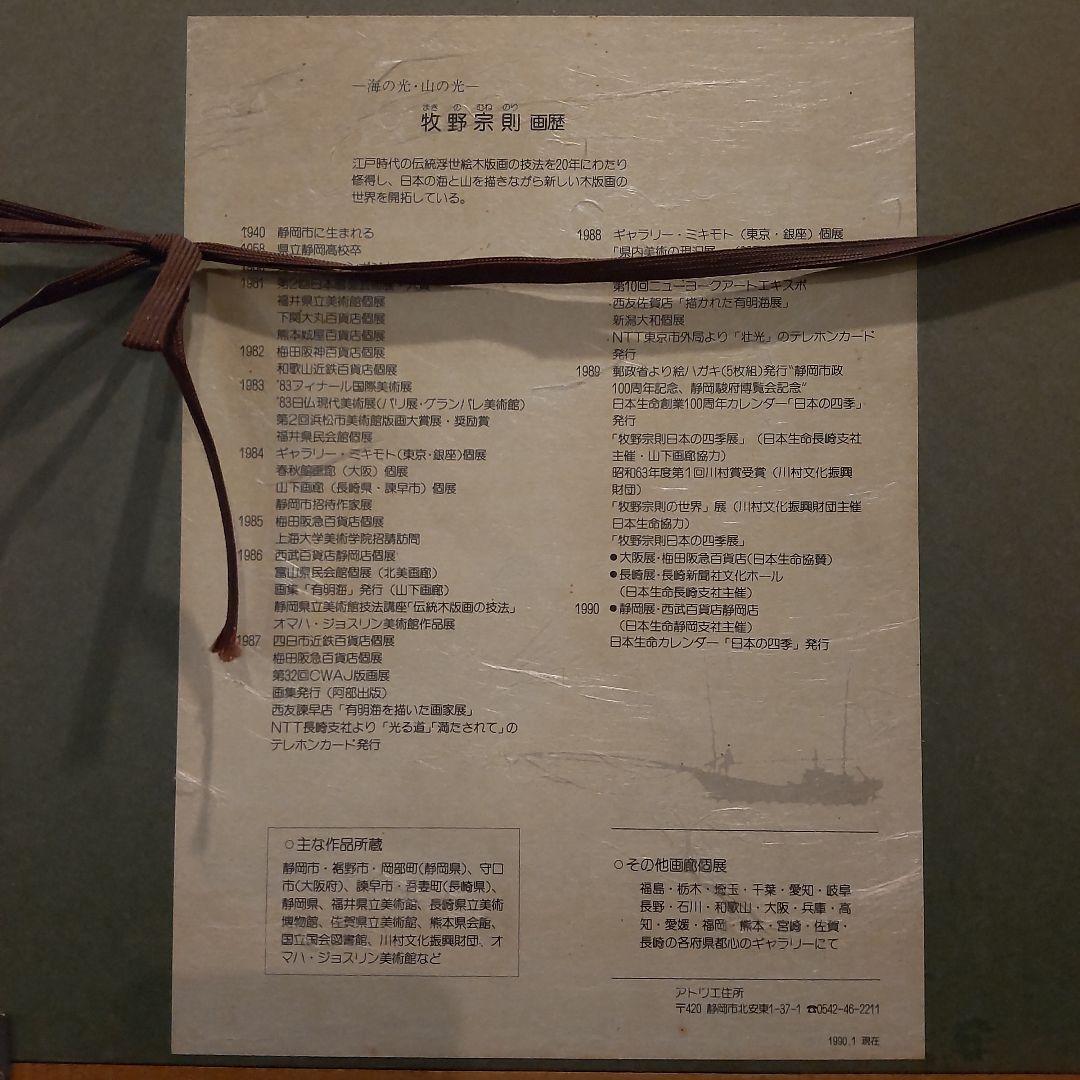 ―海の光・山の光―
まき の むね のり
牧野宗則 画歴
江戸時代の伝統浮世絵木版画の技法を20年にわたり
修得し、日本の海と山を描きながら新しい木版画の
世界を開拓している。
1940 静岡市に生まれる
1958 県立静岡高校卒
1981 第2回日本
福井県立美術館個展
下関大丸百貨店個展
熊本城屋百貨店個展
1982 梅田阪神百貨店個展
和歌山近鉄百貨店個展
1983 '83フィナール国際美術展
'83日仏現代美術展(パリ展・グランパレ美術館)
第2回浜松市美術館版画大賞展・奨励賞
福井県民会館個展
1984 ギャラリー・ミキモト(東京・銀座)個展
春秋館画廊(大阪)個展
山下画廊(長崎県・諫早市)個展
静岡市招待作家展
1985 梅田阪急百貨店個展
上海大学美術学院招請訪問
1986 西武百貨店静岡店個展
富山県民会館個展(北美画廊)
画集「有明海」発行(山下画廊)
静岡県立美術館技法講座「伝統木版画の技法」
オマハ・ジョスリン美術館作品展
1987 四日市近鉄百貨店個展
梅田阪急百貨店個展
第32回CWAJ版画展
画集発行(阿部出版)
西友諫早店「有明海を描いた画家展」
NTT長崎支社より「光る道」「満たされて」の
テレホンカード発行
1988 ギャラリー・ミキモト(東京・銀座)個展
「県内美術の現況展
第10回ニューヨークアートエキスポ
西友佐賀店「描かれた有明海展」
新潟大和個展
NTT東京市外局より「壮光」のテレホンカード
発行
1989 郵政省より絵ハガキ(5枚組)発行"静岡市政
100周年記念、静岡駿府博覧会記念"
日本生命創業100周年カレンダー「日本の四季」
発行
「牧野宗則日本の四季展」(日本生命長崎支社
主催・山下画廊協力)
昭和63年度第1回川村賞受賞(川村文化振興
財団)
「牧野宗則の世界」展(川村文化振興財団主催
日本生命協力)
「牧野宗則日本の四季展」
●大阪展・梅田阪急百貨店(日本生命協賛)
●長崎展・長崎新聞社文化ホール
(日本生命長崎支社主催)
1990 ●静岡展・西武百貨店静岡店
(日本生命静岡支社主催)
日本生命カレンダー「日本の四季」発行
○主な作品所蔵
静岡市・裾野市・岡部町(静岡県)、守口
市(大阪府)、諫早市・吾妻町(長崎県)、
静岡県、福井県立美術館、長崎県立美術
博物館、佐賀県立美術館、熊本県会館、
国立国会図書館、川村文化振興財団、オ
マハ・ジョスリン美術館など
○その他画廊個展
福島・栃木・埼玉・千葉・愛知・岐阜
長野・石川・和歌山・大阪・兵庫・高
知・愛媛・福岡・熊本・宮崎・佐賀・
長崎の各府県都心のギャラリーにて
アトリエ住所
〒420 静岡市北安東1-37-1 ☎0542-46-2211
1990.1 現在